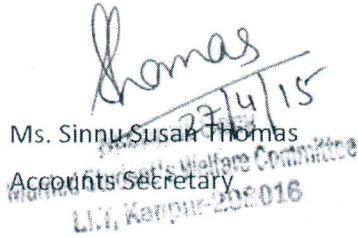 Thomas
27/4/15
Ms. Sinnu Susan Thomas
Accounts Secretary
Married Student's Welfare Committee
I.I.T, Kanpur-208016